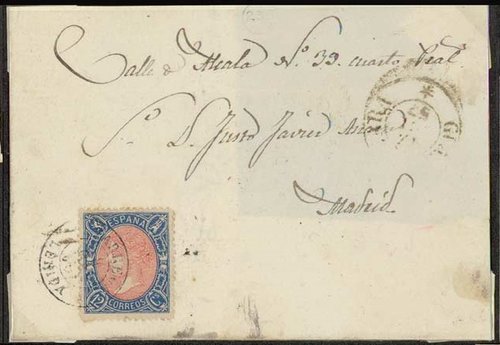 Calle de Alcala Nº 39. cuarto Pral.
Sº D. Justo Javier
Madrid
ESPAÑA
12 CORREOS Cs
LERIDA